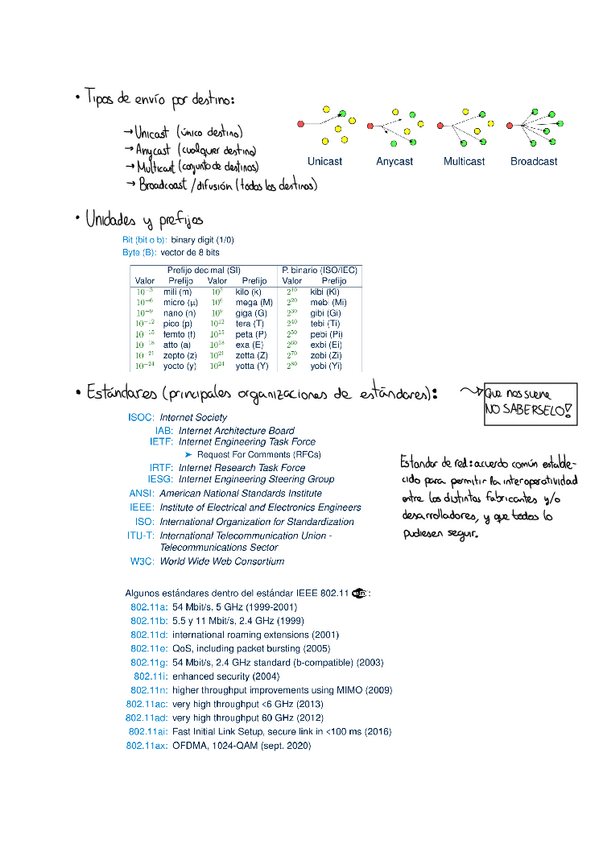 • Tipos de envío por destino:
→ Unicast (único destino)
→ Anycast (cualquier destino)
→ Multicast (conjunto de destinos)
→ Broadcoast / difusión (todos los destinos)
Unicast Anycast Multicast Broadcast
• Unidades y prefijos
Bit (bit o b): binary digit (1/0)
Byte (B): vector de 8 bits
Prefijo decimal (SI) P. binario (ISO/IEC)
Valor Prefijo Valor Prefijo Valor Prefijo
10⁻³ mili (m) 10³ kilo (k) 2¹⁰ kibi (Ki)
10⁻⁶ micro (μ) 10⁶ mega (M) 2²⁰ mebi (Mi)
10⁻⁹ nano (n) 10⁹ giga (G) 2³⁰ gibi (Gi)
10⁻¹² pico (p) 10¹² tera (T) 2⁴⁰ tebi (Ti)
10⁻¹⁵ femto (f) 10¹⁵ peta (P) 2⁵⁰ pebi (Pi)
10⁻¹⁸ atto (a) 10¹⁸ exa (E) 2⁶⁰ exbi (Ei)
10⁻²¹ zepto (z) 10²¹ zetta (Z) 2⁷⁰ zebi (Zi)
10⁻²⁴ yocto (y) 10²⁴ yotta (Y) 2⁸⁰ yobi (Yi)
• Estándares (principales organizaciones de estándares):
Que nos suene
NO SABERSELO!
ISOC: Internet Society
IAB: Internet Architecture Board
IETF: Internet Engineering Task Force
➤ Request For Comments (RFCs)
IRTF: Internet Research Task Force
IESG: Internet Engineering Steering Group
ANSI: American National Standards Institute
IEEE: Institute of Electrical and Electronics Engineers
ISO: International Organization for Standardization
ITU-T: International Telecommunication Union -
Telecommunications Sector
W3C: World Wide Web Consortium
Estandar de red: acuerdo común estable-
cido para permitir la interoperatividad
entre los distintos fabricantes y/o
desarrolladores, y que todos lo
pudiesen seguir.
Algunos estándares dentro del estándar IEEE 802.11 WiFi:
802.11a: 54 Mbit/s. 5 GHz (1999-2001)
802.11b: 5.5 y 11 Mbit/s, 2.4 GHz (1999)
802.11d: international roaming extensions (2001)
802.11e: QoS, including packet bursting (2005)
802.11g: 54 Mbit/s, 2.4 GHz standard (b-compatible) (2003)
802.11i: enhanced security (2004)
802.11n: higher throughput improvements using MIMO (2009)
802.11ac: very high throughput <6 GHz (2013)
802.11ad: very high throughput 60 GHz (2012)
802.11ai: Fast Initial Link Setup, secure link in <100 ms (2016)
802.11ax: OFDMA, 1024-QAM (sept. 2020)